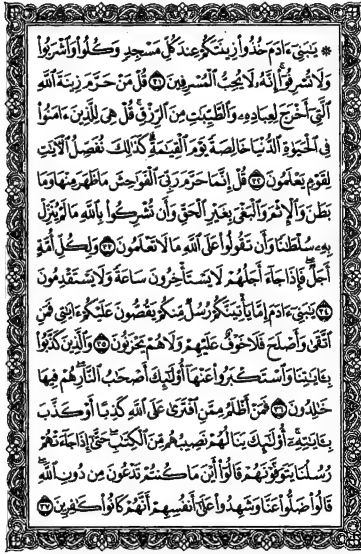 ۞ يَٰبَنِىٓ ءَادَمَ خُذُوا۟ زِينَتَكُمْ عِندَ كُلِّ مَسْجِدٍ وَكُلُوا۟ وَٱشْرَبُوا۟
وَلَا تُسْرِفُوٓا۟ ۚ إِنَّهُۥ لَا يُحِبُّ ٱلْمُسْرِفِينَ ٣١ قُلْ مَنْ حَرَّمَ زِينَةَ ٱللَّهِ
ٱلَّتِىٓ أَخْرَجَ لِعِبَادِهِۦ وَٱلطَّيِّبَٰتِ مِنَ ٱلرِّزْقِ ۚ قُلْ هِىَ لِلَّذِينَ ءَامَنُوا۟
فِى ٱلْحَيَوٰةِ ٱلدُّنْيَا خَالِصَةً يَوْمَ ٱلْقِيَٰمَةِ ۗ كَذَٰلِكَ نُفَصِّلُ ٱلْءَايَٰتِ
لِقَوْمٍ يَعْلَمُونَ ٣٢ قُلْ إِنَّمَا حَرَّمَ رَبِّىَ ٱلْفَوَٰحِشَ مَا ظَهَرَ مِنْهَا وَمَا
بَطَنَ وَٱلْإِثْمَ وَٱلْبَغْىَ بِغَيْرِ ٱلْحَقِّ وَأَن تُشْرِكُوا۟ بِٱللَّهِ مَا لَمْ يُنَزِّلْ
بِهِۦ سُلْطَٰنًا وَأَن تَقُولُوا۟ عَلَى ٱللَّهِ مَا لَا تَعْلَمُونَ ٣٣ وَلِكُلِّ أُمَّةٍ
أَجَلٌ ۖ فَإِذَا جَآءَ أَجَلُهُمْ لَا يَسْتَأْخِرُونَ سَاعَةً ۖ وَلَا يَسْتَقْدِمُونَ
٣٤ يَٰبَنِىٓ ءَادَمَ إِمَّا يَأْتِيَنَّكُمْ رُسُلٌ مِّنكُمْ يَقُصُّونَ عَلَيْكُمْ ءَايَٰتِى ۙ فَمَنِ
ٱتَّقَىٰ وَأَصْلَحَ فَلَا خَوْفٌ عَلَيْهِمْ وَلَا هُمْ يَحْزَنُونَ ٣٥ وَٱلَّذِينَ كَذَّبُوا۟
بِـَٔايَٰتِنَا وَٱسْتَكْبَرُوا۟ عَنْهَآ أُو۟لَٰٓئِكَ أَصْحَٰبُ ٱلنَّارِ ۖ هُمْ فِيهَا
خَٰلِدُونَ ٣٦ فَمَنْ أَظْلَمُ مِمَّنِ ٱفْتَرَىٰ عَلَى ٱللَّهِ كَذِبًا أَوْ كَذَّبَ
بِـَٔايَٰتِهِۦٓ ۚ أُو۟لَٰٓئِكَ يَنَالُهُمْ نَصِيبُهُم مِّنَ ٱلْكِتَٰبِ ۖ حَتَّىٰٓ إِذَا جَآءَتْهُمْ
رُسُلُنَا يَتَوَفَّوْنَهُمْ قَالُوٓا۟ أَيْنَ مَا كُنتُمْ تَدْعُونَ مِن دُونِ ٱللَّهِ ۖ
قَالُوا۟ ضَلُّوا۟ عَنَّا وَشَهِدُوا۟ عَلَىٰٓ أَنفُسِهِمْ أَنَّهُمْ كَانُوا۟ كَٰفِرِينَ ٣٧